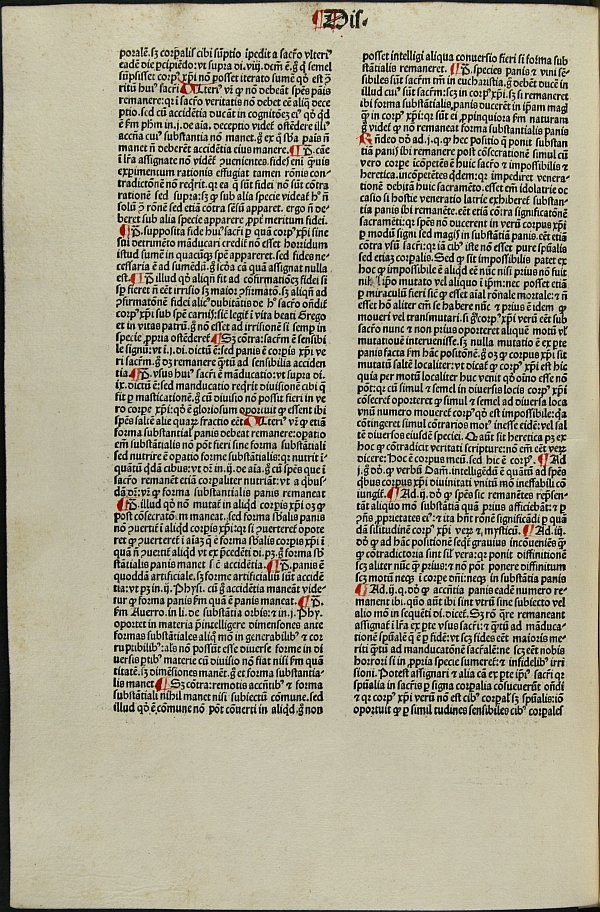 Dis.
porale. sʒ corꝑalis cibi sũptio īpedit a sacr̃o vlteri⁹
eadē die ꝑcipiēdo: vt supra di. viij. dcm̄ ē. g̊ ꝙ semel
sūpsisset corp⁹ xp̄i nō posset iterato sume
ritū hui⁹ sacri
remanere: qr i sacr̃o veritatis nō debet eē aliq̄ dece
ptio. sed cū accidētia ducāt in cognitōez ei⁹ qd̓ qd
ē fm̄ phm̄ in .j. de aīa. deceptio videt̓ ostēdere illi⁹
accñtia cui⁹ substantia nō manet. g̊ ex q̊ sb̄a pais n̄
manet n̄ deberēt accidētia eius manere. ¶ P. cāe
expimentum rationis effugiat tamen rōnis con-
tradictōnē nō reqrit. qr ea q̄ sūt fidei nō sūt cōtra
rationē sed supra: sʒ ꝙ sub alia specie videat̓ h⁹ n̄
solū p̄ rōne sed etiā cōtra sēsū apparet. ergo n̄ de-
beret sub alia specie apparere, ꝓpt meritum fidei.
¶ P. supposita fide hui⁹ sacri ꝑ quā corp⁹ xp̄i sine
sui detrimēto māducari credit̓ nō esset horridum
istud sumē in quacūqʒ spē appareret. sed fides ne-
cessaria ē ad sumēdū. g̊ icōa cā quā assignat nulla
est. ¶ P. illud qd̓ aliqn̄ fit ad cōfirmatiōez fidei si
sꝑ fieret n̄ eēt irrisio sʒ maior ꝯfirmatō. sʒ aliqn̄ ad
ꝯfirmatōnē fidei alic⁹ dubitātis de h⁹ sacr̃o on̄dit̓
corp⁹ xp̄i sub spē carnis: sic̄ legit̓ ī vita beati Grego
et in vitas patrū. g̊ nō esset ad irrisionē si semp in
specie ꝓpria ostēderet̓ ¶ Sʒ cōtra: sacr̃m ē sensibi
le signū: vt ī .j. di. dictū ē: sed panis ē corpis xp̄i ve
ri sacr̃m. g̊ dʒ remanere q̄tū ad sensibilia acciden
tia ¶ P. vsus hui⁹ sacri ē māducatio: vt supra di.
ix. dictū ē: sed manducatio reqrit diuisionē cibi q̄
fit ꝑ masticationē. g̊ cū diuisio nō possit fieri in ve
ro corpe xp̄i: qd̓ ē gloriosum oportuit ꝙ essent ibi
spēs salīe alie quaʀ fractio eēt ¶ Vlteri⁹ vr̄ ꝙ etiā
forma substantial̓ panis debeat remanere: opatio
em̄ substātialis nō pōt fieri sine forma substātiali
sed nutrire ē opatio forme substātialis: qr nutrit ī
quātū qdā cibus: vt dr̄ in .ij. de aīa. g̊ cū spēs que ī
sacr̃o remanēt etiā corpaliter nutriāt: vt a qbus-
dā dr̄: vr̄ ꝙ forma substantialis panis remaneat
¶ P. illud qd̓ nō mutat̓ in aliqd corpis xp̄i oʒ ꝙ
post cōsecratō̄. maneat. sed forma sb̄alis panis
nō ꝯuertit̓ ī aliqd corpis xp̄i: qr si ꝯuerteret̓ opote
ret ꝙ ꝯuerteret̓ ī aīaʒ q̄ ē forma sb̄alis corpis xp̄i ī
qua n̄ ꝯuertit̓ aliqd vt ex p̄cedēti di. pʒ. g̊ forma sb̄
stātialis panis manet ¶ P. panis ē
quoddā artificiale. sʒ forme artificialiū sūt accidē
tia: vt pʒ in .ij. Phisi. cū g̊ accidētia maneāt vide-
tur ꝙ forma panis fm̄ quā ē panis maneat. ¶ P.
fm̄ Auerro. in li. de substātia orbis: et in .j. Phy.
oportet in materia p̄intelligere dimensiones ante
formas substātiales aliq̄ mō in generabilib⁹ et cor
ruptibilib⁹: als̄ nō possūt esse diuerse forme in di
uersis ptib⁹ materie cū diuisio nō fiat nisi fm̄ quā
titatē. sʒ dimēsiones manēt. g̊ et forma substantia-
lis manet ¶ Sʒ cōtra: remotis accn̄tib⁹ et forma
substātiali nihil manet nisi subiectū cōmune. sed
illud qd̓ ē cōmune nō pōt cōuerti in aliqd. g̊ non
posset intelligi aliqua conuersio fieri si forma sub
stātialis remaneret. ¶ P. species panis et vini sē-
sibiles sūt sacr̃m tm̄ in eucharistia. g̊ debēt ducē in
illud cui⁹ sūt sacr̃m: scʒ in corp⁹ xp̄i. sʒ si remaneret
ibi forma substātialis, panis ducerēt in ip̄am mag̓
ꝙ in corp⁹ xp̄i: qr sūt ei ꝓpinquiora fm̄ naturam
g̊ videt̓ ꝙ nō remaneat forma substantialis panis
Rn̄deo dd̄ ad .j. q. ꝙ hec positio q̄ ponit substan
tiā panis ibi remanere post cōsecrationē simul cū
vero corpe icōpetēs ē huic sacr̃o et impossibilis et
heretica. incōpetēs qdem: qr impediret venera-
tionē debitā huic sacramēto. esset em̄ idolatrie oc
casio si hostie veneratio latrie exhiberet̓ substan-
tia panis ibi remanēte. eēt etiā cōtra significatōnē
sacramēti: qr spēs nō ducerent in verū corpus xp̄i
ꝑ modū signi sed magis in substātiā panis. eēt etiā
cōtra vsū sacri: qr iā cib⁹ iste nō esset pure spūalis
sed etiaʒ corpalis. Sed ꝙ sit impossibilis patet ex
hoc ꝙ impossibile ē aliqd eē nūc nisi prius nō fuit
nisi ip̄o mutato vel aliquo ī ip̄m: nec posset etiā
ꝑ miraculū fieri sic̄ ꝙ esset aīal rōnale mortale: et n̄
esset hō aliter em̄ se habere nūc et prius ē idem ꝙ
moueri vel transmutari. si g̊ corp⁹ xp̄i verū eēt sub
sacr̃o nunc et non prius oporteret aliquē motū vl̓
mutationē interuenisse. sʒ nulla mutatio ē ex pte
panis facta fm̄ hāc positōnē. g̊ oʒ ꝙ corpus xp̄i sit
mutatū saltē localiter: vt dicat̓ ꝙ corp⁹ xp̄i est hic
quia per motū localiter huc venit qd̓ oīno esse nō
pōt: qr cū simul et semel in diuersis locis corp⁹ xp̄i
cōsecret̓ oporteret ꝙ simul et semel ad diuersa loca
vnū numero moueret̓ corp⁹ qd̓ est impossibile: qa
cōtingeret simul cōtrarios mot⁹ inesse eidē: vel sal
tē diuersos eiusdē speciei. Q̄ aūt sit heretica pʒ ex
hoc ꝙ cōtradicit veritati scripture: nō em̄ eēt verʒ
dicere: Hoc ē corpus meū. sed hic ē corp⁹. ¶ Ad
.j. g̊ dd̄. ꝙ verbū Dam̄. intelligēdū ē quātū ad spēs
quibus corpus xp̄i diuinitati vnitū mō ineffabili cō
iungit̓. ¶ Ad .ij. dd̄ ꝙ spēs sic remanētes rep̄sen-
tāt aliquo mō substātiā quā prius afficiebāt: et ꝑ
ꝯn̄s ꝓprietates ei⁹: et ita hn̄t rōnē significādi ꝑ quā
dā silitudinē corp⁹ xp̄i verʒ et mysticū. ¶ Ad .iij.
dd̄ ꝙ ad hāc positionē seqret̓ grauius incōueniēs ꝙ
ꝙ cōtradictoria sint sil̓ vera: qr ponit diffinitionē
scʒ aliter nūc ꝙ prius: et nō pōt ponere diffinitum
scʒ motū neqʒ ī corpe dn̄i: neqʒ in substātia panis
¶ Ad .ij. q. dd̄ ꝙ accn̄tia panis eadē numero re-
manent ibi. quo aūt ibi sint vtrū sine subiecto vel
alio mō in seqn̄ti di. dicet̓. Sʒ rō q̄re remaneant
assignat̓ ī lr̄a ex pte vsus sacri: et q̄tū ad māduca-
tionē spūalē q̄ ē ꝑ fidē: vt scʒ fides eēt maioris me
riti: q̄tū ad manducatōnē sacr̃alē: ne scʒ eēt nobis
horrori si in ꝓpria specie sumeret̓: et infidelib⁹ irri
sioni. Potest assignari et alia cā ex pte ip̄i⁹ sacri: qr
spūalia in sacr̃is ꝑ signa corpalia cōsueuerūt on̄di
et qr corp⁹ xp̄i verū nō est cib⁹ corpal̓ sʒ spūalis: iō
oportuit ꝙ ꝑ similitudines sensibiles cib⁹ corpales